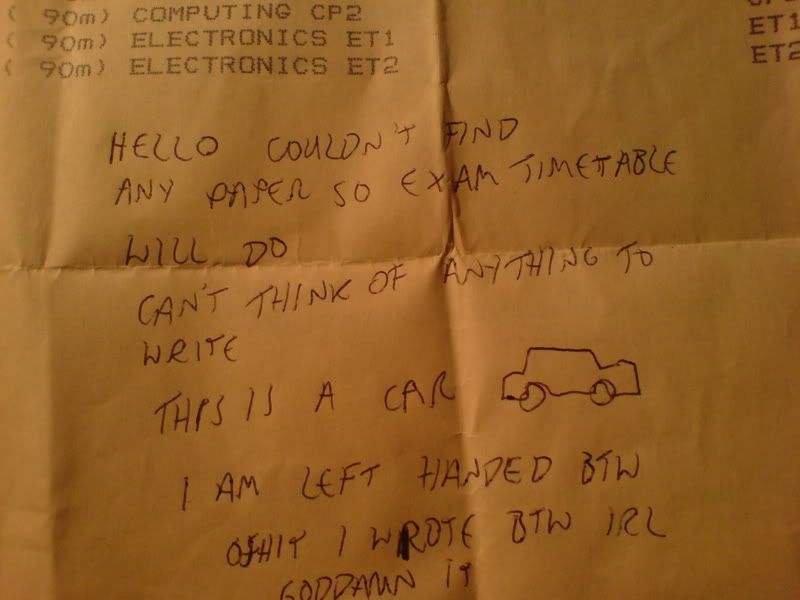 ( 90m) COMPUTING CP2
( 90m) ELECTRONICS ET1
ET1
( 90m) ELECTRONICS ET2
ET2
HELLO COULDN'T FIND
ANY PAPER SO EXAM TIMETABLE
WILL DO
CAN'T THINK OF ANYTHING TO
WRITE
THIS IS A CAR
I AM LEFT HANDED BTW
OSHIT I WROTE BTW IRL
GODDAMN IT